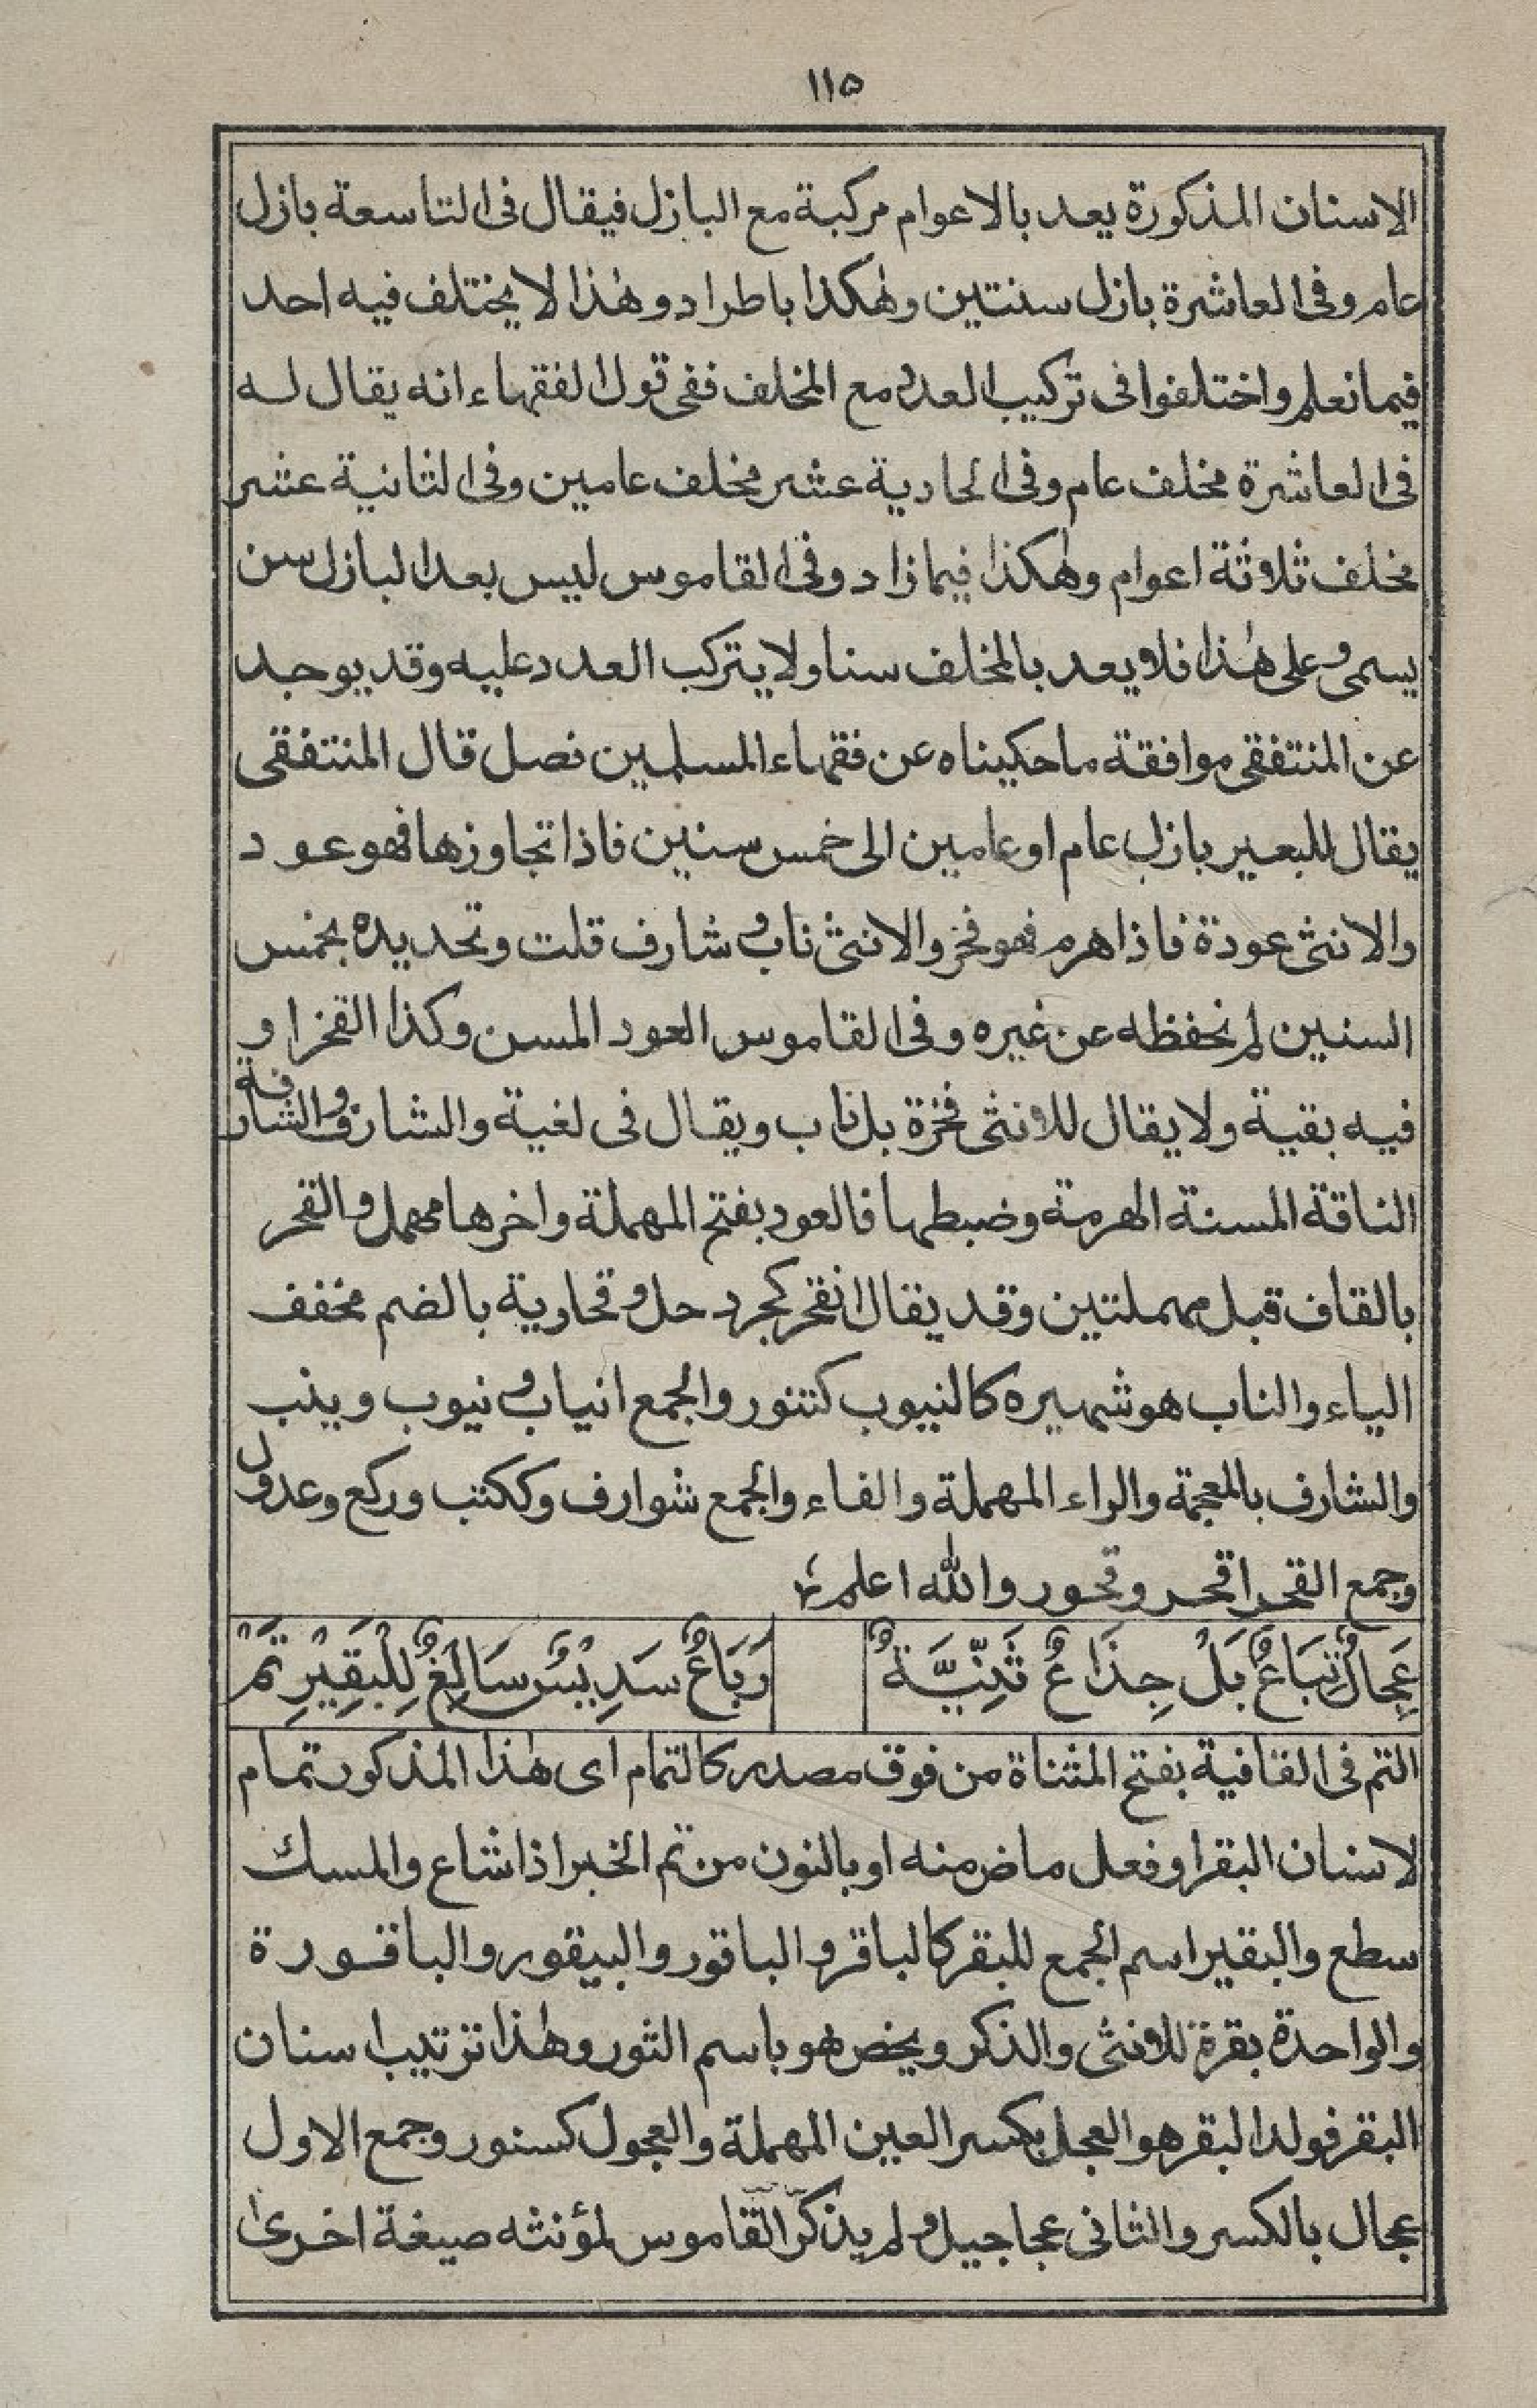 ١١٥
الاسنان المذكورة يعد بالاعوام مركبة مع البازل فيقال فى التاسعة بازل
عام وفى العاشرة بازل سنتين وهكذا باطراد وهذا لا يختلف فيه احد
فيما نعلم واختلفوا فى تركيب العدد مع المخلف ففى قول الفقهاء انه يقال له
فى العاشرة مخلف عام وفى الحادية عشر مخلف عامين وفى الثانية عشر
مخلف ثلاثة اعوام وهكذا فيما زاد وفى القاموس ليس بعد البازل سن
يسمى وعلى هذا فلا يعد بالمخلف سنا ولا يتركب العدد عليه وقد يوجد
عن المنتفقى موافقة ما حكيناه عن فقهاء المسلمين فصل قال المنتفقى
يقال للبعير بازل عام او عامين الى خمس سنين فاذا تجاوزها فهو عود
والانثى عودة فاذا هرم فهو فخر والانثى ناب وشارف قلت وتحديده بخمس
السنين لم نحفظه عن غيره وفى القاموس العود المسن وكذا القخر او
فيه بقية ولا يقال للانثى فخرة بل ناب ويقال فى لغية والشارف والشارفة
الناقة المسنة الهرمة وضبطها فالعود بفتح المهملة واخرها مهمل والقحر
بالقاف قبل مهملتين وقد يقال انقحر كجرد حل وقحاوية بالضم مخفف
الياء والناب هو شهيره كالنيوب كتنور والجمع انياب ونيوب وينب
والشارف بالمعجمة والراء المهملة والفاء والجمع شوارف وككتب وركع وعدول
وجمع القحر اقحر وقحور والله اعلم
عِجَالٌ تِبَاعٌ بَلْ جِذَاعٌ ثَنِيَّةٌ رَبَاعٌ سَدِيْسٌ سَالِغٌ لِلْبَقِيْرِ تَمْ
التم فى القافية بفتح المثناة من فوق مصدر كالتمام اى هذا المذكور تمام
لاسنان البقر او فعل ماض منه او بالنون من نم الخبر اذا شاع والمسك
سطع والبقير اسم الجمع للبقر كالباقر والباقور والبيقور والباقورة
والواحدة بقرة للانثى والذكر ويخص هو باسم الثور وهذا ترتيب اسنان
البقر فولد البقر هو العجل بكسر العين المهملة والعجول كسنور وجمع الاول
عجال بالكسر والثانى عجاجيل ولم يذكر القاموس لمؤنثه صيغة اخرى